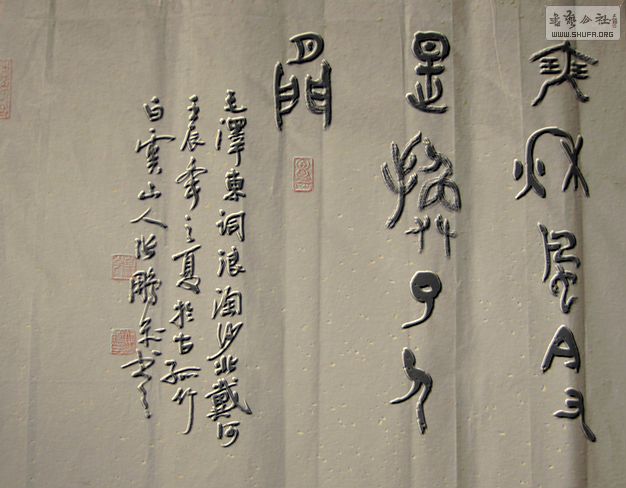 書藝公社
WWW.SHUFA.ORG
瑟秋風今又
是換了人
間
毛澤東詞浪淘沙北戴河
壬辰年之夏於古孤竹
白雲山人张鵬